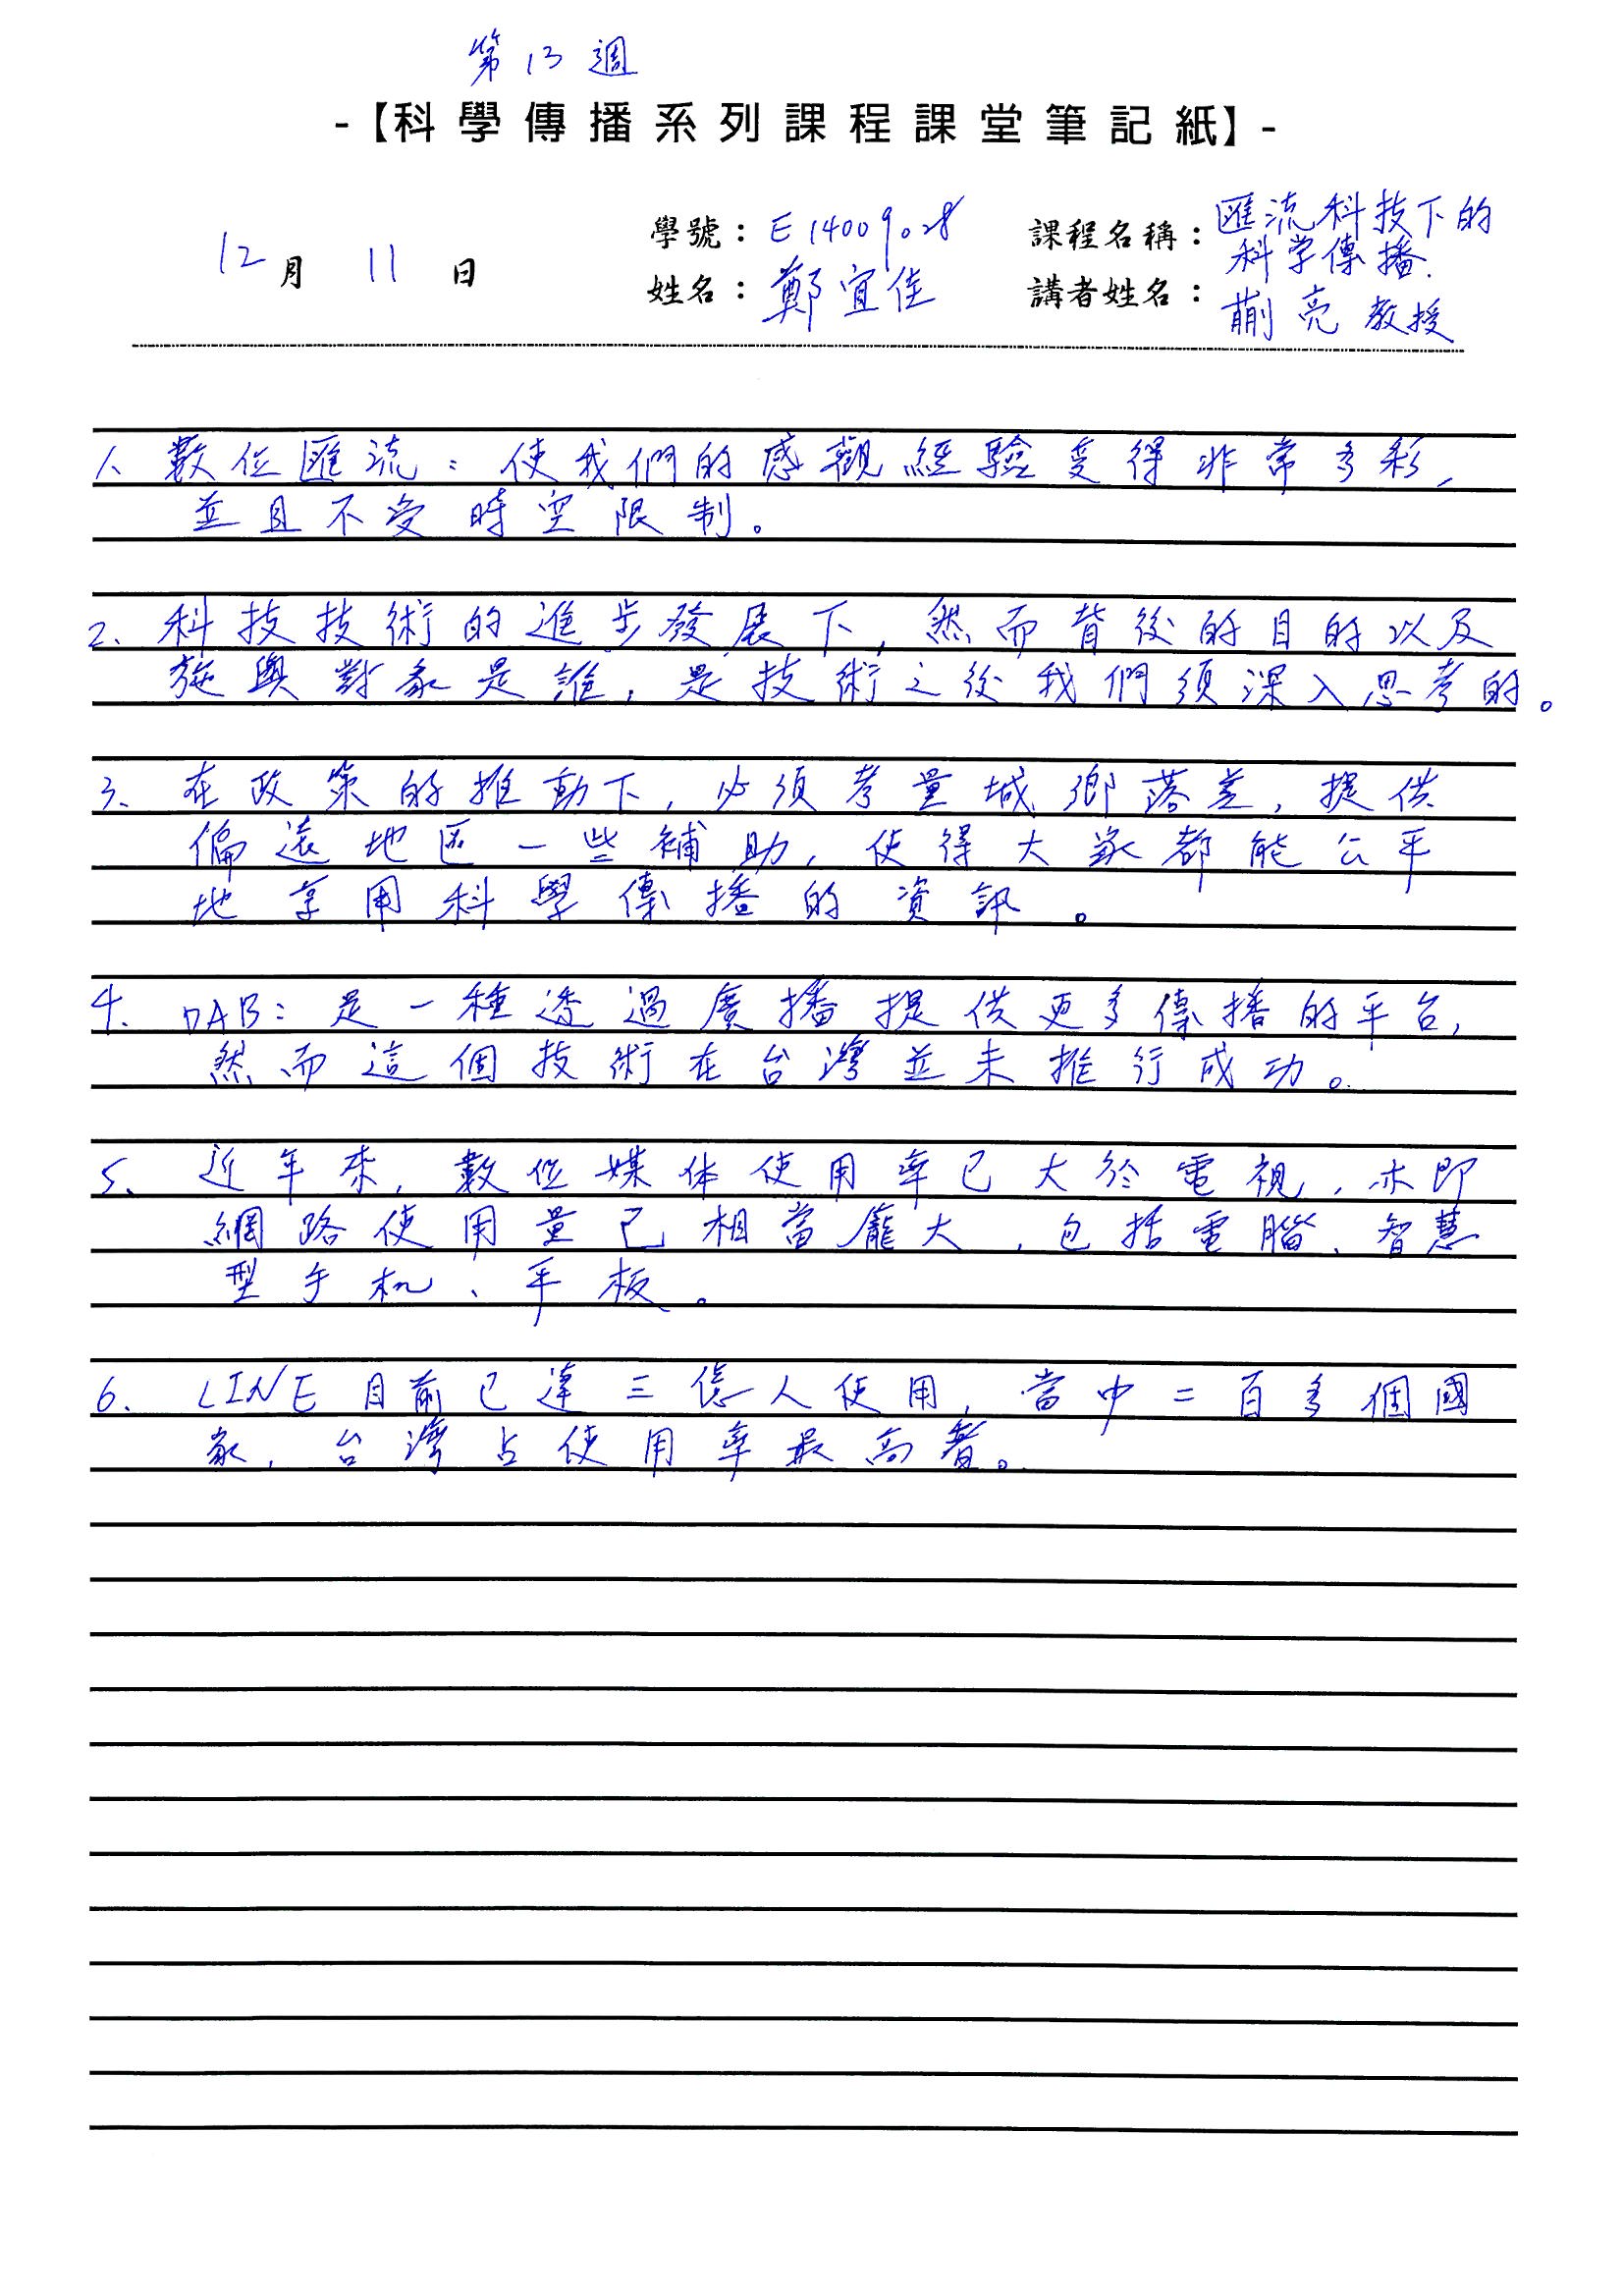 第13週
-【科學傳播系列課程課堂筆記紙】-
12月 11日
學號：E14009028
課程名稱：匯流科技下的
科学傳播.
姓名：鄭宜佳
講者姓名：蒯亮教授
1、數位匯流：使我們的感觀經驗變得非常多彩，
並且不受時空限制。
2、科技技術的進步發展下，然而背後的目的以及
施與對象是誰，是技術之後我們須深入思考的。
3、在政策的推動下，必須考量城鄉落差，提供
偏遠地区一些補助，使得大家都能公平
地享用科學傳播的資訊。
4、DAB：是一種透過廣播提供更多傳播的平台，
然而這個技術在台灣並未推行成功。
5、近年來，數位媒体使用率已大於電視，亦即
網路使用量已相當龐大，包括電腦、智慧
型手机、平板。
6、LINE目前已達三億人使用，當中二百多個國
家，台灣占使用率最高者。